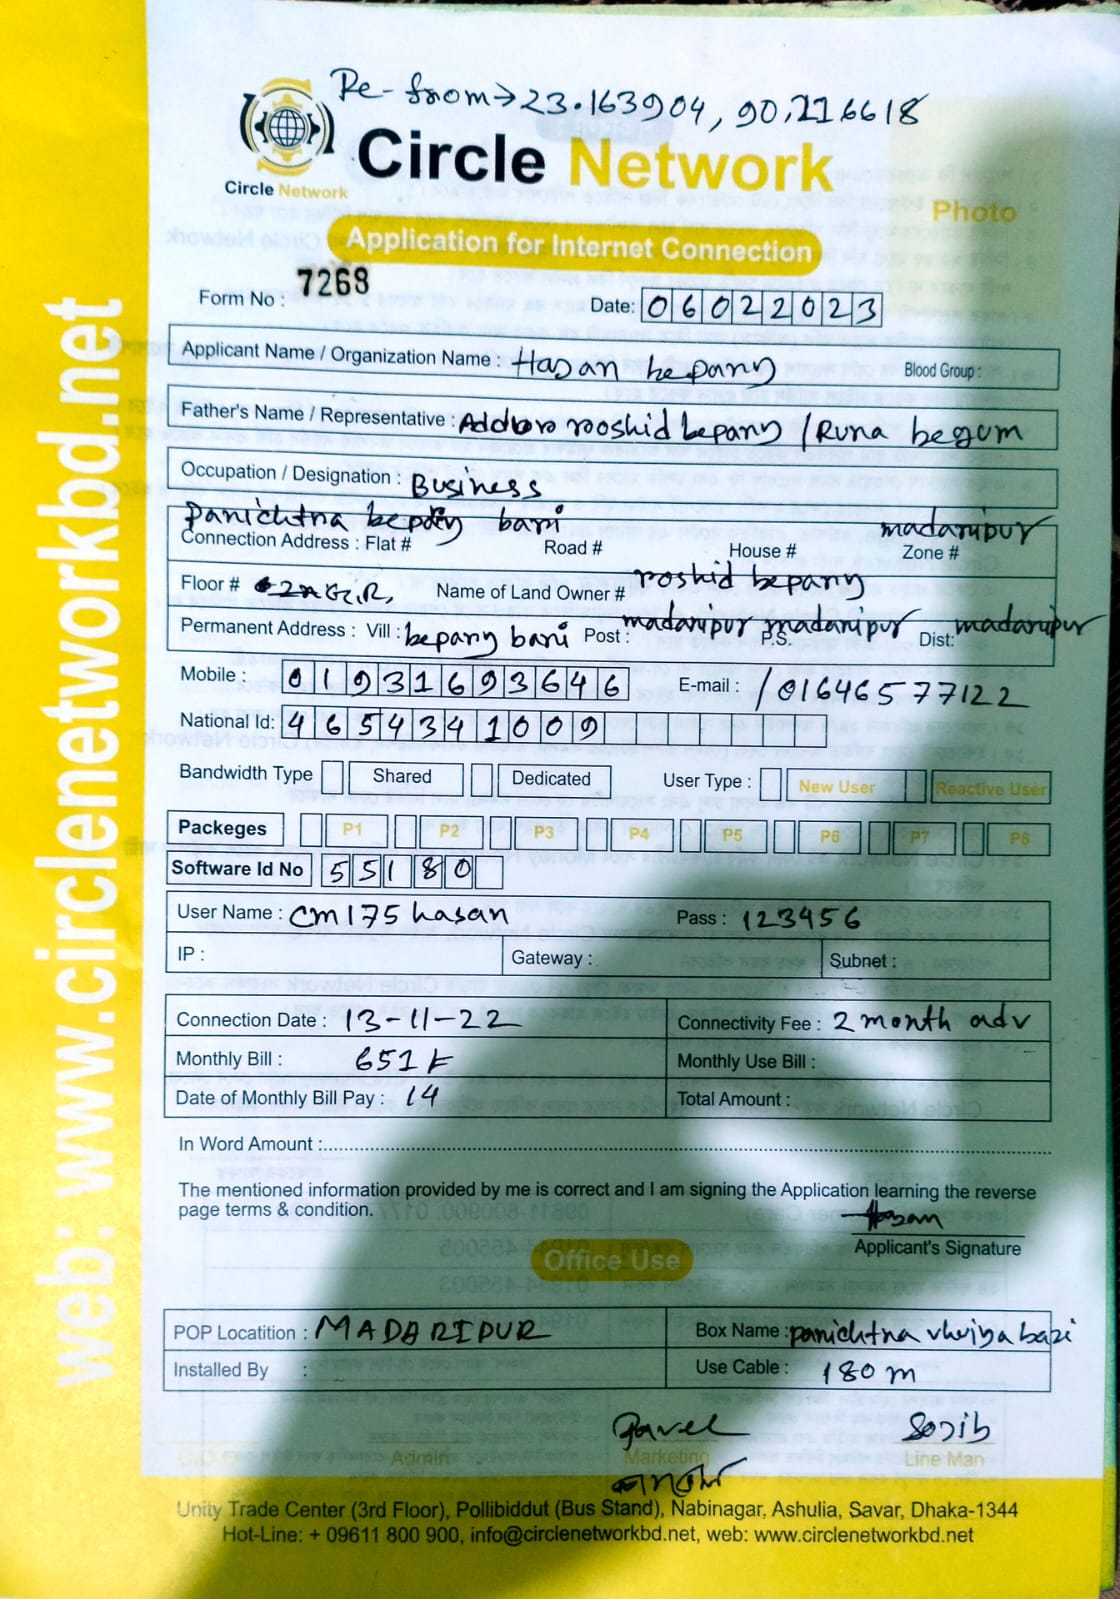 Re-from→23.163904, 90.216618
Circle Network
Circle Network
Photo
Application for Internet Connection
Form No : 7268
Date: 06022023
Applicant Name / Organization Name : Hasan bepary Blood Group :
Father's Name / Representative : Addur rooshid bepary / Runa begum
Occupation / Designation : Business
Panichtna bepary bari madaripur
Connection Address : Flat # Road # House # Zone #
Floor # G.R, Name of Land Owner # roshid bepary
Permanent Address : Vill : bepary bari Post : madaripur P.S. madaripur Dist: madaripur
Mobile : 01931693646 E-mail : /01646577122
National Id: 4654341009
Bandwidth Type Shared Dedicated User Type : New User Reactive User
Packeges P1 P2 P3 P4 P5 P6 P7 P8
Software Id No 55180
User Name : cm175hasan Pass : 123456
IP : Gateway : Subnet :
Connection Date : 13-11-22 Connectivity Fee : 2 month adv
Monthly Bill : 651 Monthly Use Bill :
Date of Monthly Bill Pay : 14 Total Amount :
In Word Amount :
The mentioned information provided by me is correct and I am signing the Application learning the reverse
page terms & condition.
Hasan
Applicant's Signature
Office Use
POP Locatition : MADARIPUR Box Name : panichtna vhuiya bari
Installed By : Use Cable : 180 m
Pavel Sojib
Admin Marketing Line Man
Unity Trade Center (3rd Floor), Pollibiddut (Bus Stand), Nabinagar, Ashulia, Savar, Dhaka-1344
Hot-Line: + 09611 800 900, info@circlenetworkbd.net, web: www.circlenetworkbd.net
web: www.circlenetworkbd.net